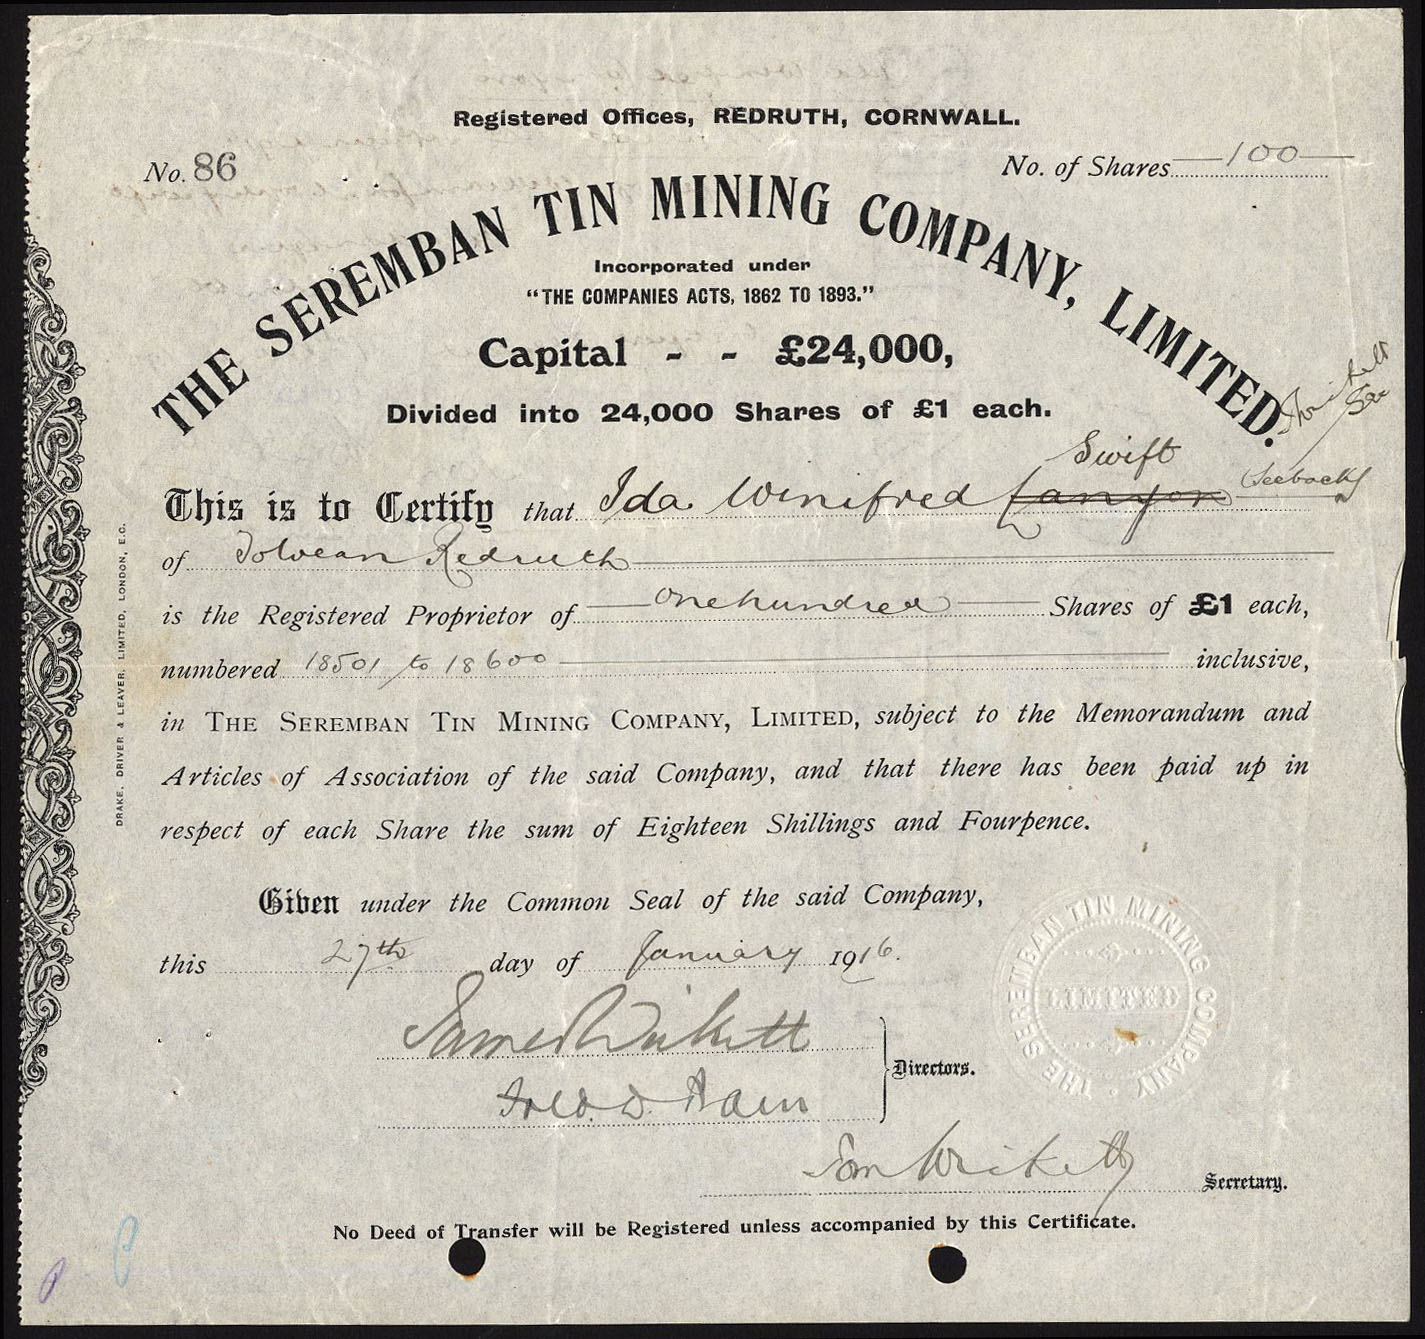 Registered Offices, REDRUTH, CORNWALL.
No. 86
No. of Shares 100
THE SEREMBAN TIN MINING COMPANY, LIMITED.
Incorporated under
"THE COMPANIES ACTS, 1862 TO 1893."
Capital - - £24,000,
Divided into 24,000 Shares of £1 each.
Swift
This is to Certify that Ida Winifred Lanyon (see back)
of Tolvean Redruth
is the Registered Proprietor of one hundred Shares of £1 each,
numbered 18501 to 18600 inclusive,
in THE SEREMBAN TIN MINING COMPANY, LIMITED, subject to the Memorandum and
Articles of Association of the said Company, and that there has been paid up in
respect of each Share the sum of Eighteen Shillings and Fourpence.
Given under the Common Seal of the said Company,
this 27th day of January 1916.
James Wickett
Directors.
Secretary.
No Deed of Transfer will be Registered unless accompanied by this Certificate.
DRAKE, DRIVER & LEAVER, LIMITED, LONDON, E.C.
THE SEREMBAN TIN MINING COMPANY
LIMITED